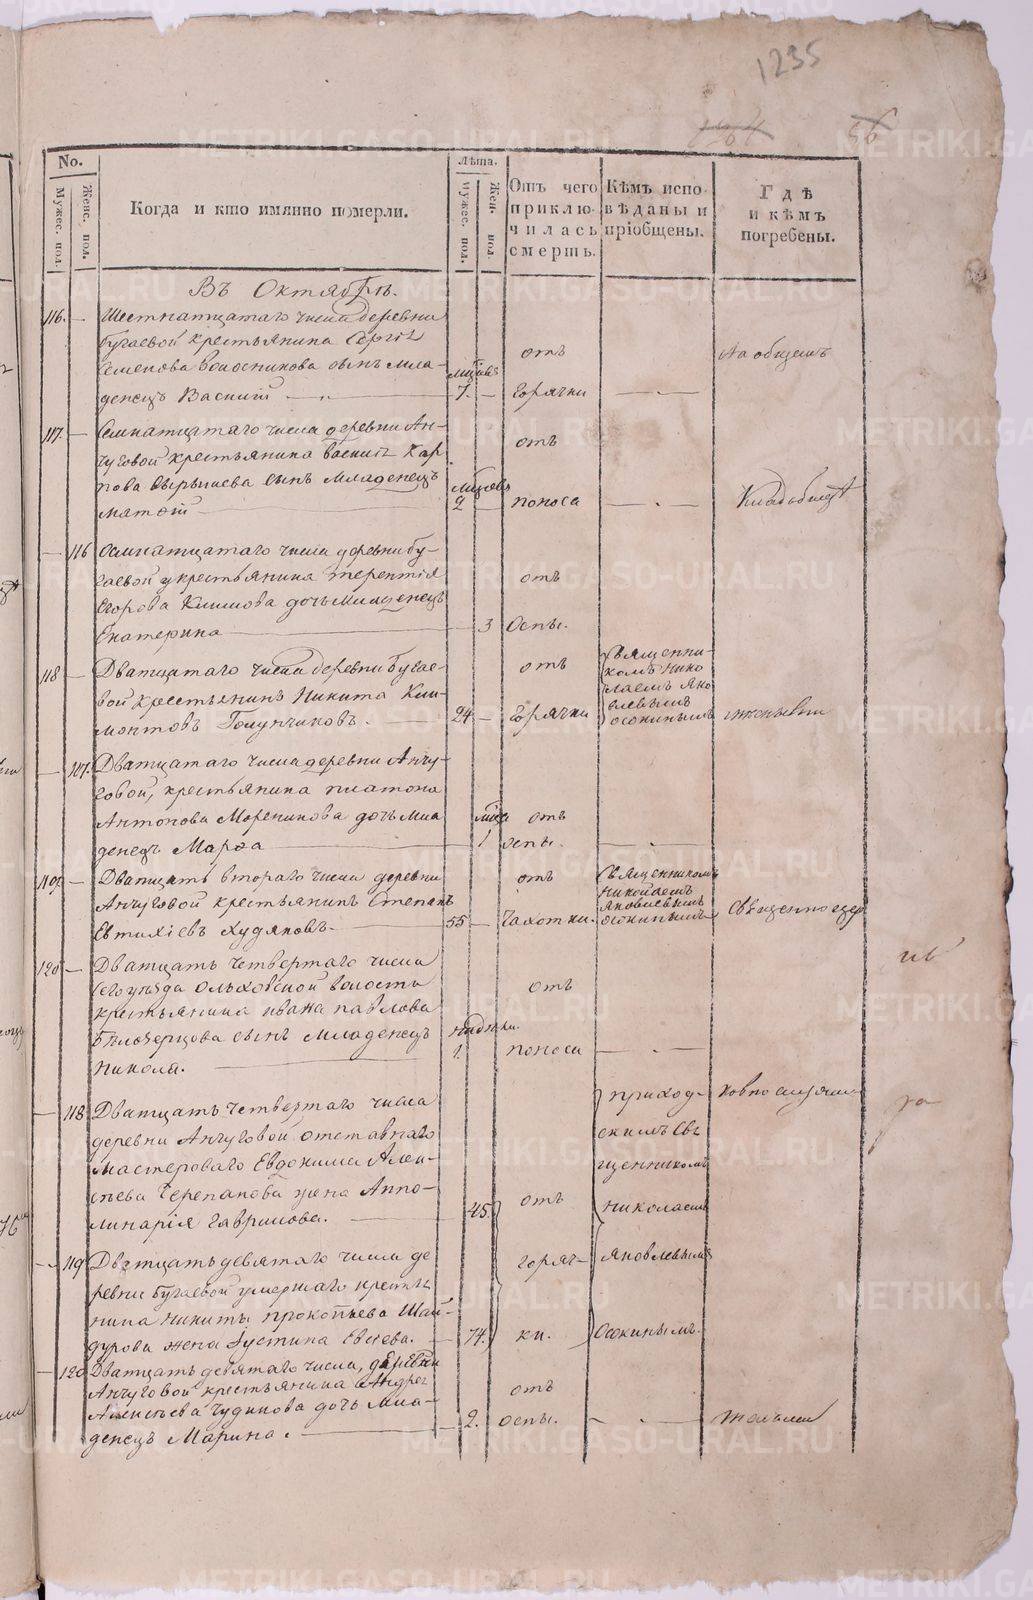 1235
No.
Мужес. пол.
Женс. пол.
Когда и кто имянно померли.
Лѣта.
Мужес. пол.
Жен. пол.
Отъ чего
приклю-
чилась
смерть.
Кѣмъ испо-
вѣданы и
пріобщены.
Гдѣ
и кѣмъ
погребены.
Въ Октябрѣ.
116. Шестнатцатаго числа деревни
бугаевой крестьянина Сергія
Семенова сынъ мла-
денецъ Василій
7.
отъ
горячки
На общемъ
117. Семнатцатаго числа деревни Ан-
чуговой крестьянина василія Кар-
пова сынъ младенецъ
матвѣй
2
отъ
поноса
Кладбищѣ
116 Осмнатцатаго числа деревни бу-
гаевой крестьянина терентія
Егорова Климова дочь младенецъ
Екатерина
3
отъ
Оспы.
118 Дватцатаго числа деревни бугае-
вой крестьянинъ Никита Кли-
монтовъ Голунчиковъ.
24
отъ
горячки
Священни-
комъ Нико
лаемъ Яко
влевымъ
осокинымъ
117. Дватцатаго числа деревни Анчу-
говой, крестьянина платона
Антонова дочь мла
денецъ Марѳа
1
отъ
оспы.
119. Дватцать втораго числа деревни
Анчуговой крестьянинъ Степанъ
Евтихіевъ Худяковъ.
55
отъ
Чахотки.
Священникомъ
николаемъ
яковлевымъ
осокинымъ
Священноцер
120 Дватцать четвертаго числа
сего уѣзда Ольховской волости
крестьянина ивана павлова
Бѣлозерцова сынъ младенецъ
Николай.
1.
отъ
поноса
118 Дватцать четвертаго числа
деревни Анчуговой отставнаго
мастероваго Евдокима Алек-
сѣева Черепанова жена Аппо-
линарія гаврилова.
45
отъ
приход-
скимъ свя
щенникомъ
николаемъ
ковнослужи
119 Дватцать девятаго числа де
ревни бугаевой умершаго крестья
нина никиты прокопьева Шай-
дурова жена Іустина Евсеева.
74.
горяч-
ки.
яковлевымъ
Осокинымъ.
120 Дватцать девятаго числа, деревни
Анчуговой крестьянина Андрея
Алексѣева Чудинова дочь мла-
денецъ Марина.
2.
отъ
оспы.
тельми
METRIKI.GASO-URAL.RU